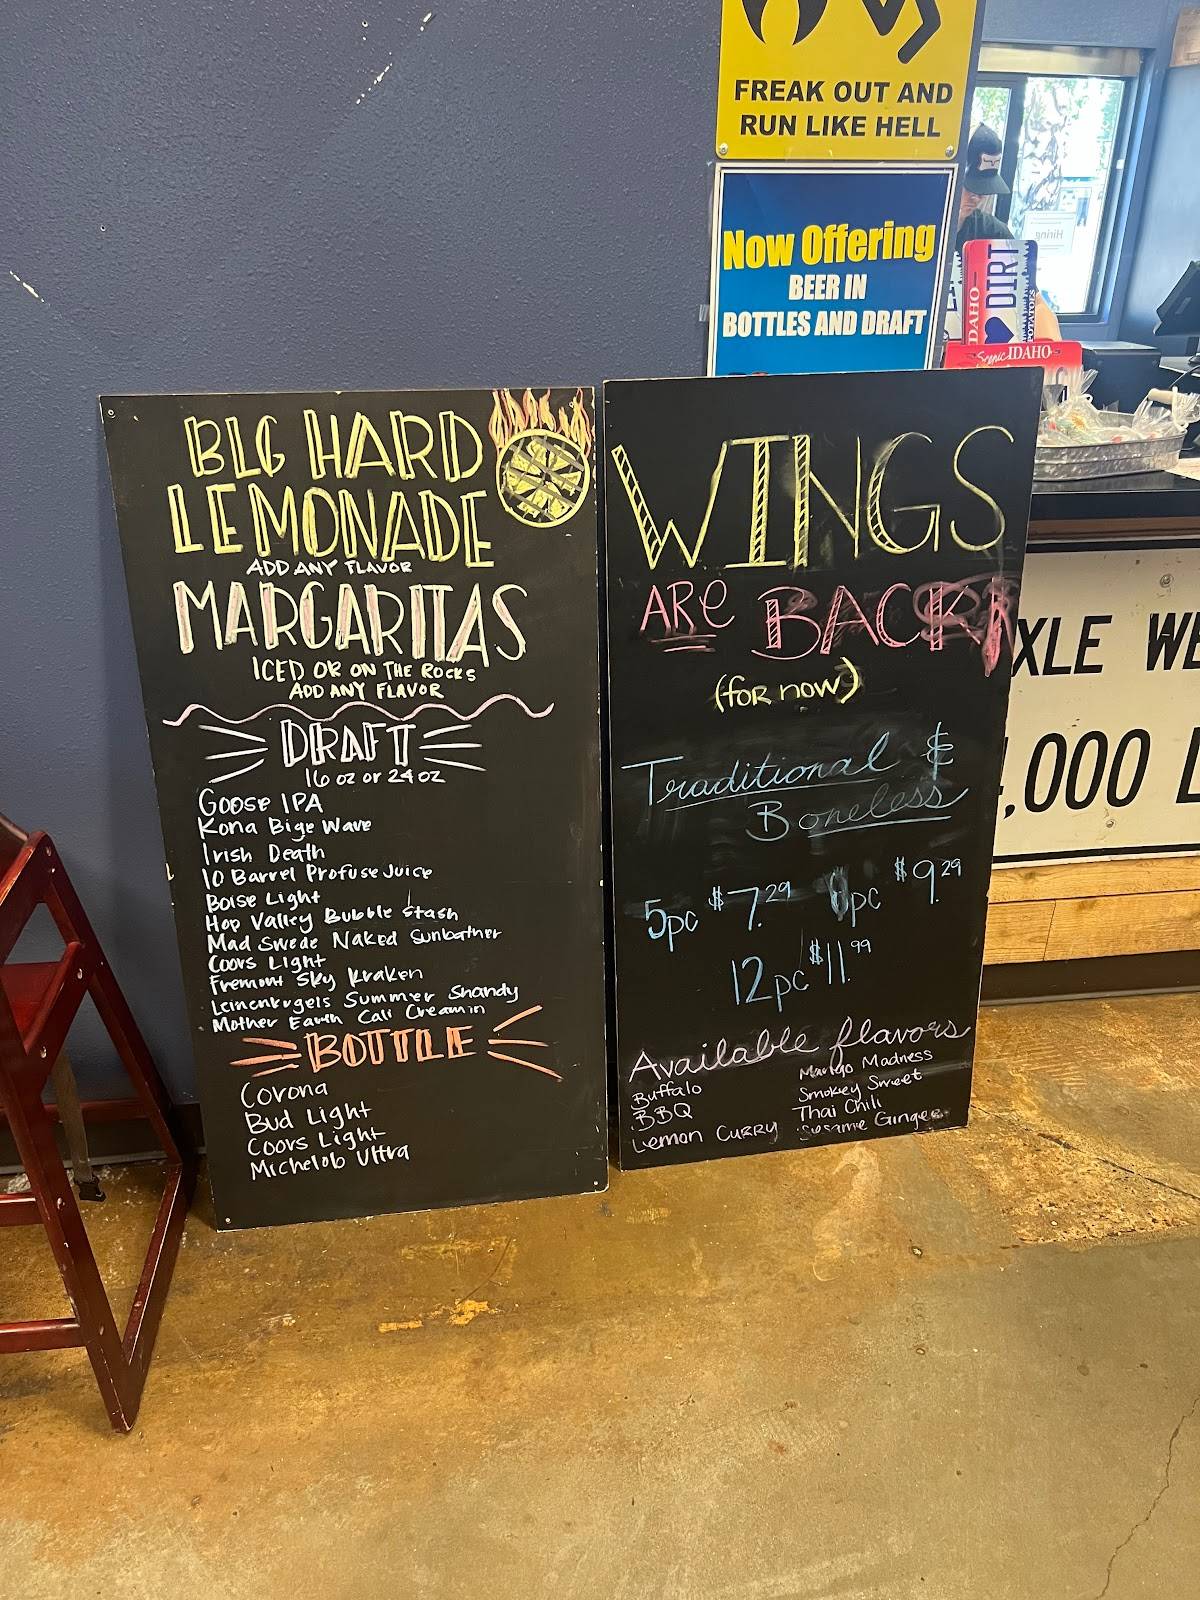 FREAK OUT AND
RUN LIKE HELL
Now Offering
BEER IN
BOTTLES AND DRAFT
IDAHO
DIRT
POTATOES
Scenic IDAHO
Hiring
BLG HARD
LEMONADE
ADD ANY FLAVOR
MARGARITAS
ICED OR ON THE ROCKS
ADD ANY FLAVOR
DRAFT
16 oz or 24 oz
Goose IPA
Kona Bige Wave
Irish Death
10 Barrel Profuse Juice
Boise Light
Hop Valley Bubble Stash
Mad Swede Naked Sunbather
Coors Light
Fremont Sky Kraken
Leinenkugels Summer Shandy
Mother Earth Cali Creamin
BOTTLE
Corona
Bud Light
Coors Light
Michelob Ultra
WINGS
ARe BACK
(for now)
Traditional &
Boneless
5pc $7.29 pc $9.29
12pc $11.99
Available flavors
Buffalo
BBQ
Lemon Curry
Mango Madness
Smokey Sweet
Thai Chili
Sesame Ginger
XLE WE
,000 L